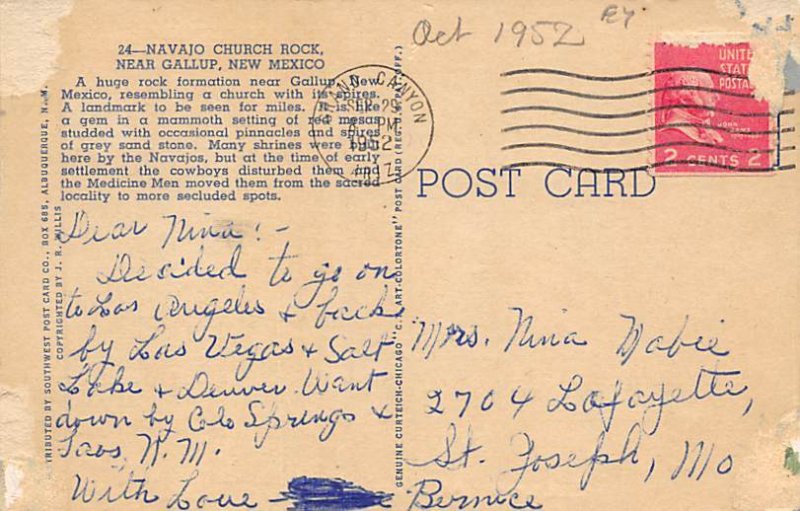 Oct 1952
24—NAVAJO CHURCH ROCK,
NEAR GALLUP, NEW MEXICO
A huge rock formation near Gallup, New
Mexico, resembling a church with its spires.
A landmark to be seen for miles. It is like
a gem in a mammoth setting of red mesas
studded with occasional pinnacles and spires
of grey sand stone. Many shrines were built
here by the Navajos, but at the time of early
settlement the cowboys disturbed them and
the Medicine Men moved them from the sacred
locality to more secluded spots.
GRAND CANYON
SEP 29
PM
1952
ARIZ.
UNITED
STATES
POSTAGE
JOHN ADAMS
2 CENTS 2
POST CARD
Dear Nina:-
Decided to go on
to Los Angeles & back
by Las Vegas & Salt
Lake & Denver. Want
down by Colo Springs &
Taos, N.M.
With Love
Bernice
Mrs. Nina Mabie
2704 Lafayette,
St. Joseph, Mo
TRIBUTED BY SOUTHWEST POST CARD CO., BOX 685, ALBUQUERQUE, N. M.
COPYRIGHTED BY J. R. WILLIS
GENUINE CURTEICH-CHICAGO "C. T. ART-COLORTONE" POST CARD (REG. U. S. PAT. OFF.)